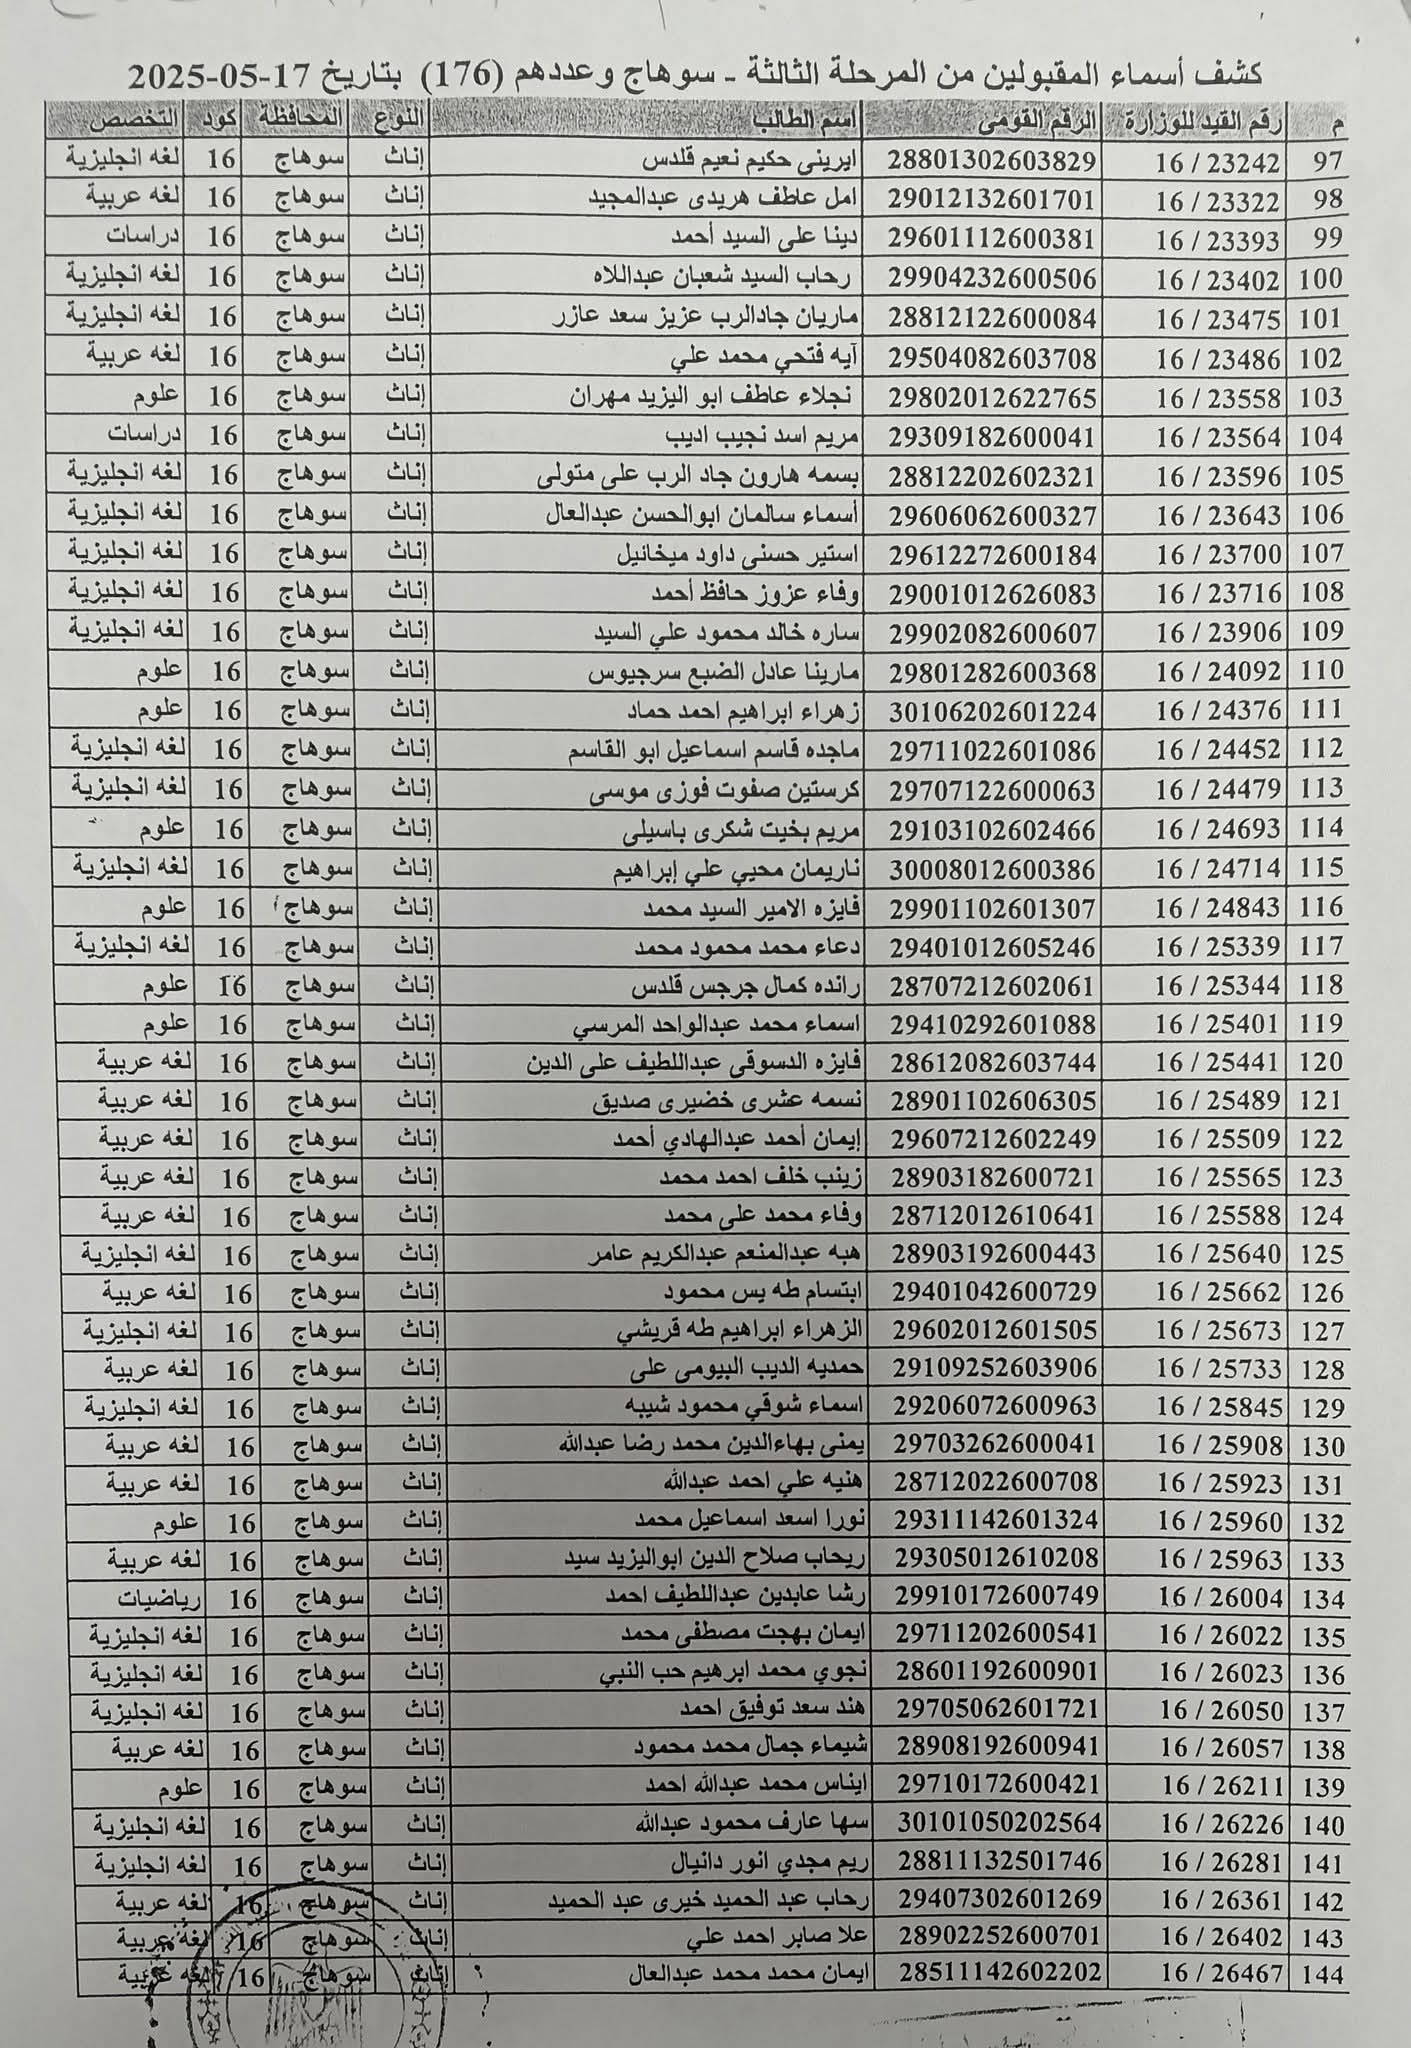 كشف أسماء المقبولين من المرحلة الثالثة - سوهاج وعددهم (176) بتاريخ 17-05-2025
م رقم القيد للوزارة الرقم القومى اسم الطالب النوع المحافظة كود التخصص
97 16 / 23242 28801302603829 ايرينى حكيم نعيم قلدس إناث سوهاج 16 لغه انجليزية
98 16 / 23322 29012132601701 امل عاطف هريدى عبدالمجيد إناث سوهاج 16 لغه عربية
99 16 / 23393 29601112600381 دينا على السيد أحمد إناث سوهاج 16 دراسات
100 16 / 23402 29904232600506 رحاب السيد شعبان عبداللاه إناث سوهاج 16 لغه انجليزية
101 16 / 23475 28812122600084 ماريان جادالرب عزيز سعد عازر إناث سوهاج 16 لغه انجليزية
102 16 / 23486 29504082603708 آيه فتحي محمد علي إناث سوهاج 16 لغه عربية
103 16 / 23558 29802012622765 نجلاء عاطف ابو اليزيد مهران إناث سوهاج 16 علوم
104 16 / 23564 29309182600041 مريم اسد نجيب اديب إناث سوهاج 16 دراسات
105 16 / 23596 28812202602321 بسمه هارون جاد الرب على متولى إناث سوهاج 16 لغه انجليزية
106 16 / 23643 29606062600327 أسماء سالمان ابوالحسن عبدالعال إناث سوهاج 16 لغه انجليزية
107 16 / 23700 29612272600184 استير حسنى داود ميخائيل إناث سوهاج 16 لغه انجليزية
108 16 / 23716 29001012626083 وفاء عزوز حافظ أحمد إناث سوهاج 16 لغه انجليزية
109 16 / 23906 29902082600607 ساره خالد محمود علي السيد إناث سوهاج 16 لغه انجليزية
110 16 / 24092 29801282600368 مارينا عادل الضبع سرجيوس إناث سوهاج 16 علوم
111 16 / 24376 30106202601224 زهراء ابراهيم احمد حماد إناث سوهاج 16 علوم
112 16 / 24452 29711022601086 ماجده قاسم اسماعيل ابو القاسم إناث سوهاج 16 لغه انجليزية
113 16 / 24479 29707122600063 كرستين صفوت فوزى موسى إناث سوهاج 16 لغه انجليزية
114 16 / 24693 29103102602466 مريم بخيت شكرى باسيلى إناث سوهاج 16 علوم
115 16 / 24714 30008012600386 ناريمان محيي علي إبراهيم إناث سوهاج 16 لغه انجليزية
116 16 / 24843 29901102601307 فايزه الامير السيد محمد إناث سوهاج 16 علوم
117 16 / 25339 29401012605246 دعاء محمد محمود محمد إناث سوهاج 16 لغه انجليزية
118 16 / 25344 28707212602061 رانده كمال جرجس قلدس إناث سوهاج 16 علوم
119 16 / 25401 29410292601088 اسماء محمد عبدالواحد المرسي إناث سوهاج 16 علوم
120 16 / 25441 28612082603744 فايزه الدسوقى عبداللطيف على الدين إناث سوهاج 16 لغه عربية
121 16 / 25489 28901102606305 نسمه عشرى خضيرى صديق إناث سوهاج 16 لغه عربية
122 16 / 25509 29607212602249 إيمان أحمد عبدالهادي أحمد إناث سوهاج 16 لغه عربية
123 16 / 25565 28903182600721 زينب خلف احمد محمد إناث سوهاج 16 لغه عربية
124 16 / 25588 28712012610641 وفاء محمد على محمد إناث سوهاج 16 لغه عربية
125 16 / 25640 28903192600443 هبه عبدالمنعم عبدالكريم عامر إناث سوهاج 16 لغه انجليزية
126 16 / 25662 29401042600729 ابتسام طه يس محمود إناث سوهاج 16 لغه عربية
127 16 / 25673 29602012601505 الزهراء ابراهيم طه قريشي إناث سوهاج 16 لغه انجليزية
128 16 / 25733 29109252603906 حمديه الديب البيومى على إناث سوهاج 16 لغه عربية
129 16 / 25845 29206072600963 اسماء شوقي محمود شيبه إناث سوهاج 16 لغه انجليزية
130 16 / 25908 29703262600041 يمنى بهاءالدين محمد رضا عبدالله إناث سوهاج 16 لغه عربية
131 16 / 25923 28712022600708 هنيه علي احمد عبدالله إناث سوهاج 16 لغه عربية
132 16 / 25960 29311142601324 نورا اسعد اسماعيل محمد إناث سوهاج 16 علوم
133 16 / 25963 29305012610208 ريحاب صلاح الدين ابواليزيد سيد إناث سوهاج 16 لغه عربية
134 16 / 26004 29910172600749 رشا عابدين عبداللطيف احمد إناث سوهاج 16 رياضيات
135 16 / 26022 29711202600541 ايمان بهجت مصطفى محمد إناث سوهاج 16 لغه انجليزية
136 16 / 26023 28601192600901 نجوي محمد ابرهيم حب النبي إناث سوهاج 16 لغه انجليزية
137 16 / 26050 29705062601721 هند سعد توفيق احمد إناث سوهاج 16 لغه انجليزية
138 16 / 26057 28908192600941 شيماء جمال محمد محمود إناث سوهاج 16 لغه عربية
139 16 / 26211 29710172600421 ايناس محمد عبدالله احمد إناث سوهاج 16 علوم
140 16 / 26226 30101050202564 سها عارف محمود عبدالله إناث سوهاج 16 لغه انجليزية
141 16 / 26281 28811132501746 ريم مجدي انور دانيال إناث سوهاج 16 لغه انجليزية
142 16 / 26361 29407302601269 رحاب عبد الحميد خيرى عبد الحميد إناث سوهاج 16 لغه عربية
143 16 / 26402 28902252600701 علا صابر احمد علي إناث سوهاج 16 لغه عربية
144 16 / 26467 28511142602202 ايمان محمد محمد عبدالعال إناث سوهاج 16 لغه عربية